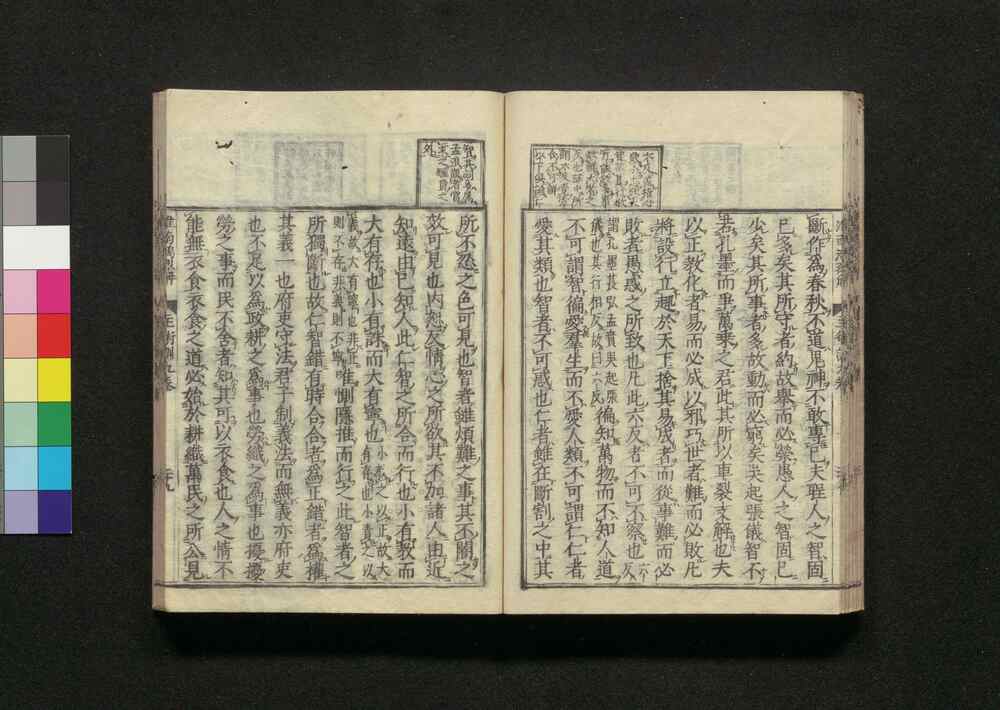 斷作爲春秋不道鬼神不敢專己夫聖人之智固
已多矣其所守者約故擧而必榮愚人之智固已
少矣其所事者多故動而必窮矣夫起張儀智不
若孔墨而爭萬乘之君此其所以車裂支解也夫
以正敎化者易而必成以邪巧世者難而必敗凡
將設行立趣於天下捨其易成者而從事難而必
敗者愚惑之所致也凡此六反者不可不察也六反
謂孔墨萇弘孟賁吳起張
儀也其行相反故曰六反徧知萬物而不知人道
不可謂智徧愛羣生而不愛人類不可謂仁仁者
愛其類也智者不可惑也仁者雖在斷割之中其
所不忍之色可見也智者雖煩難之事其不闇之
效可見也内恕反情心之所欲其不加諸人由近
知遠由己知人此仁智之所合而行也小有敎而
大有存也小有誅而大有寧也小責之以正故大
有存也小責之以
義故大有寧也非正
則不存非義則不寧唯惻隱推而行之此智者之
所獨斷也故仁智錯有時合合者爲正錯者爲權
其義一也府吏守法君子制義法而無義亦府吏
也不足以爲政耕之爲事也勞織之爲事也擾擾
勞之事而民不舍者知其可以衣食也人之情不
能無衣食衣食之道必始於耕織萬民之所公見